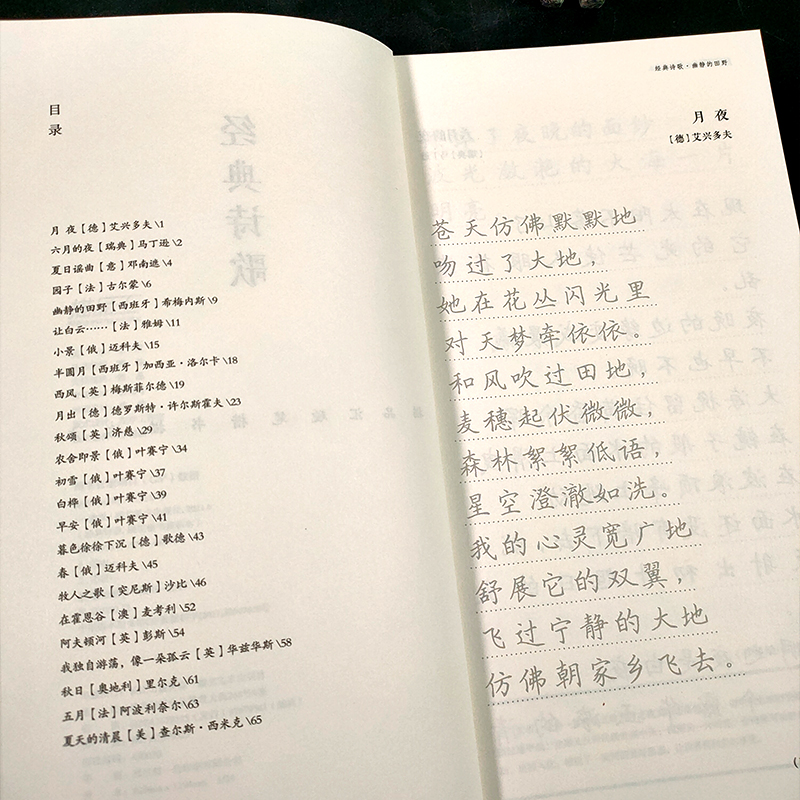 目录
月 夜【德】艾兴多夫\1
六月的夜【瑞典】马丁逊\2
夏日谣曲【意】邓南遮\4
园子【法】古尔蒙\6
幽静的田野【西班牙】希梅内斯\9
让白云……【法】雅姆\11
小景【俄】迈科夫\15
半圆月【西班牙】加西亚·洛尔卡\18
西风【英】梅斯菲尔德\19
月出【德】德罗斯特·许尔斯霍夫\23
秋颂【英】济慈\29
农舍即景【俄】叶赛宁\34
初雪【俄】叶赛宁\37
白桦【俄】叶赛宁\39
早安【俄】叶赛宁\41
暮色徐徐下沉【德】歌德\43
春【俄】迈科夫\45
牧人之歌【突尼斯】沙比\46
在霍恩谷【澳】麦考利\52
阿夫顿河【英】彭斯\54
我独自游荡，像一朵孤云【英】华兹华斯\58
秋日【奥地利】里尔克\61
五月【法】阿波利奈尔\63
夏天的清晨【美】查尔斯·西米克\65
经典诗歌·幽静的田野
月 夜
【德】艾兴多夫
苍天仿佛默默地
吻过了大地，
她在花丛闪光里
对天梦牵依依。
和风吹过田地，
麦穗起伏微微，
森林絮絮低语，
星空澄澈如洗。
我的心灵宽广地
舒展它的双翼，
飞过宁静的大地
仿佛朝家乡飞去。